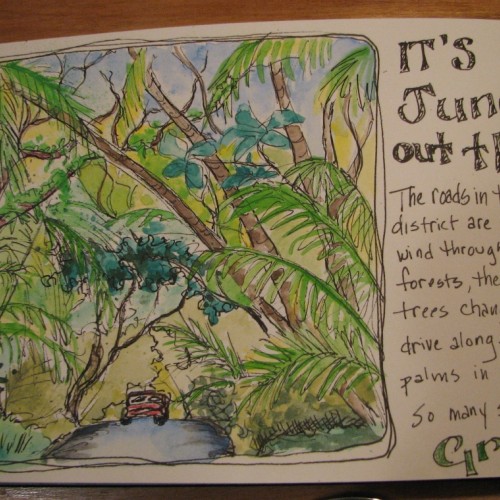 IT'S
out
The roads in
district are
wind through
forests, the
trees chan
drive along
palms in
So many